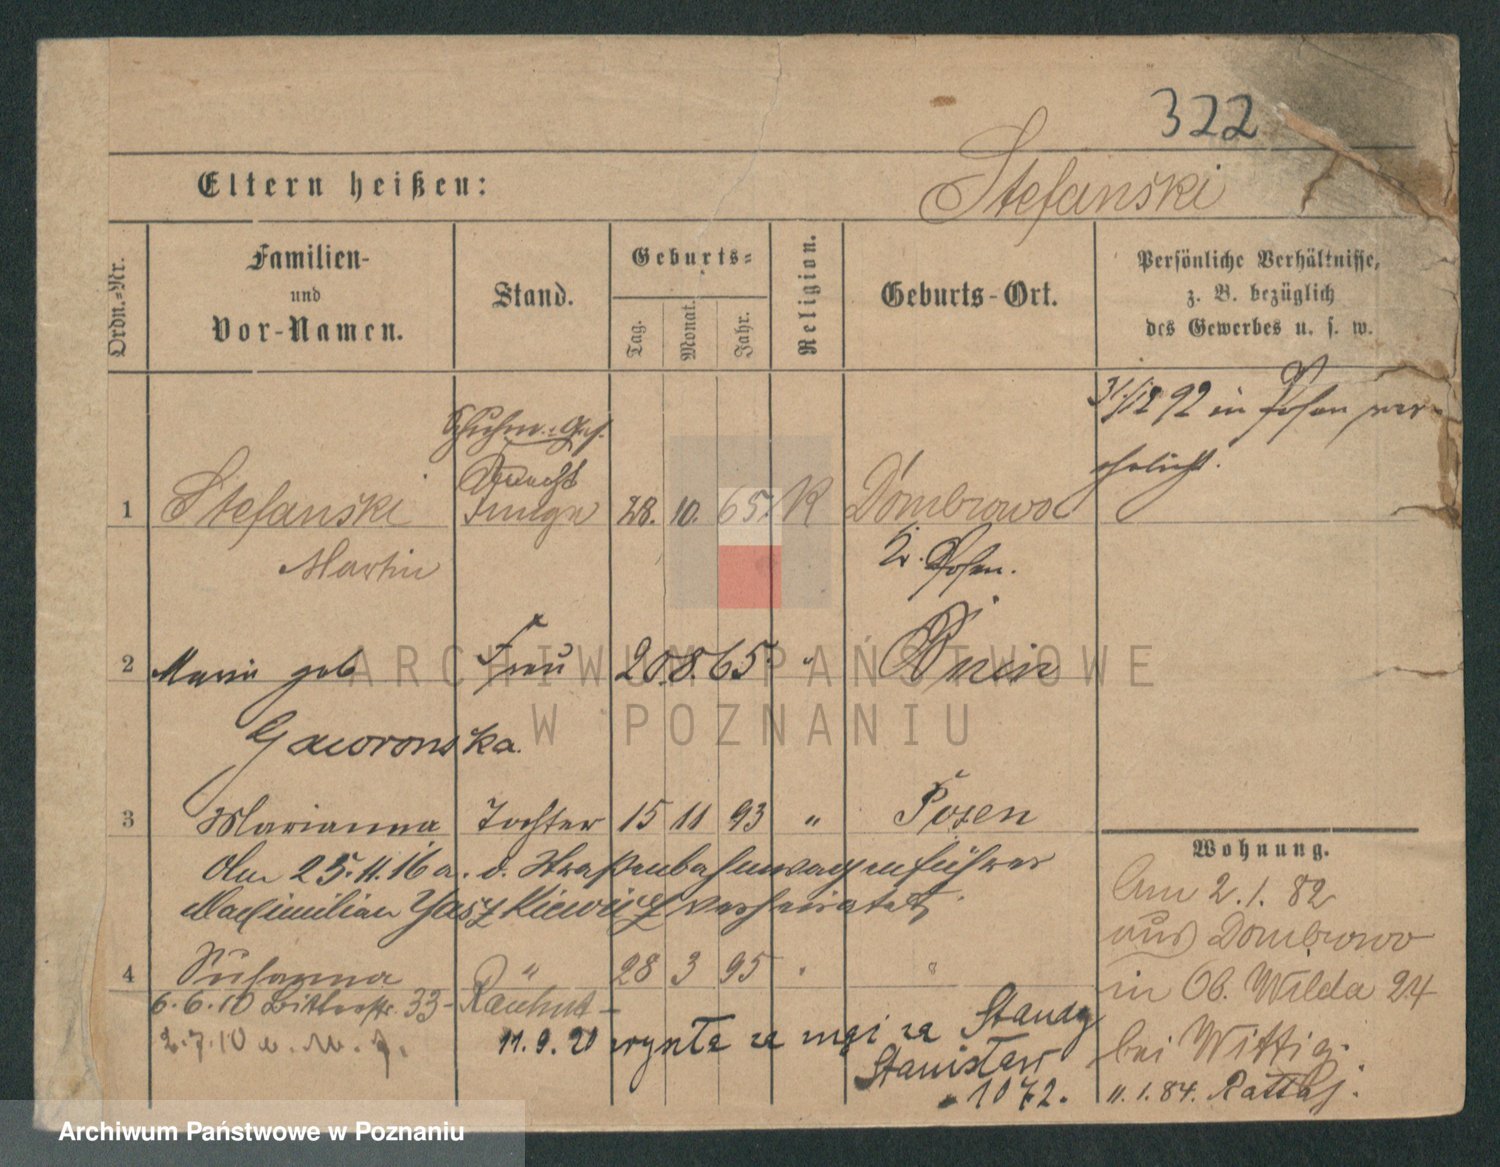 322
Eltern heißen:
Stefański
Ordn.=Nr.
Familien-
und
Vor-Namen.
Stand.
Geburts=
Tag.
Monat.
Jahr.
Religion.
Geburts-Ort.
Persönliche Verhältnisse,
z. B. bezüglich
des Gewerbes u. s. w.
31/12 92 in Posen ver-
ehelicht.
Schuhm.-Ges.
Knecht
1 Stefański Junge 28. 10. 65. K Dombrowo
Martin Kr. Posen.
2 Marie geb Frau 20.8.65. " Bnin
Gaworonska.
3 Marianna Tochter 15 11 93 " Posen
Am 25.11.16 a. d. Straßenbahnwagenführer
Maximilian verheiratet.
4 Susanna " 28 3 95 " "
6.6.10 33- Rauhut-
2.7.10
11.9.20 za mąż za Standy
Stanisław
1072.
Wohnung.
Am 2.1.82
aus Dombrowo
in Ob. Wilda 24
bei Wittig.
11.1.84. Rattaj.
ARCHIWUM PAŃSTWOWE
W POZNANIU
Archiwum Państwowe w Poznaniu